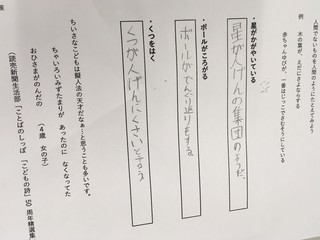 例　木の葉が、えだにさよならする
人間でないものを人間のようにたとえてみよう
赤ちゃんゆびが、一番はじっこでさむそうにしている
・星がかがやいている
星が人げんの集団のようだ。
・ボールがころがる
ボールがでんぐり返りをする
・くつをはく
くつが人げんにくさいと言う
ちいさなこどもは擬人法の天才だなぁ…と思うことも多いです。
ちゃいろいみずたまりが　あったのに　なくなってた
おひさまがのんだの
（４歳　女の子）
（読売新聞生活部「ことばのしっぽ　「こどもの詩」50周年精選集